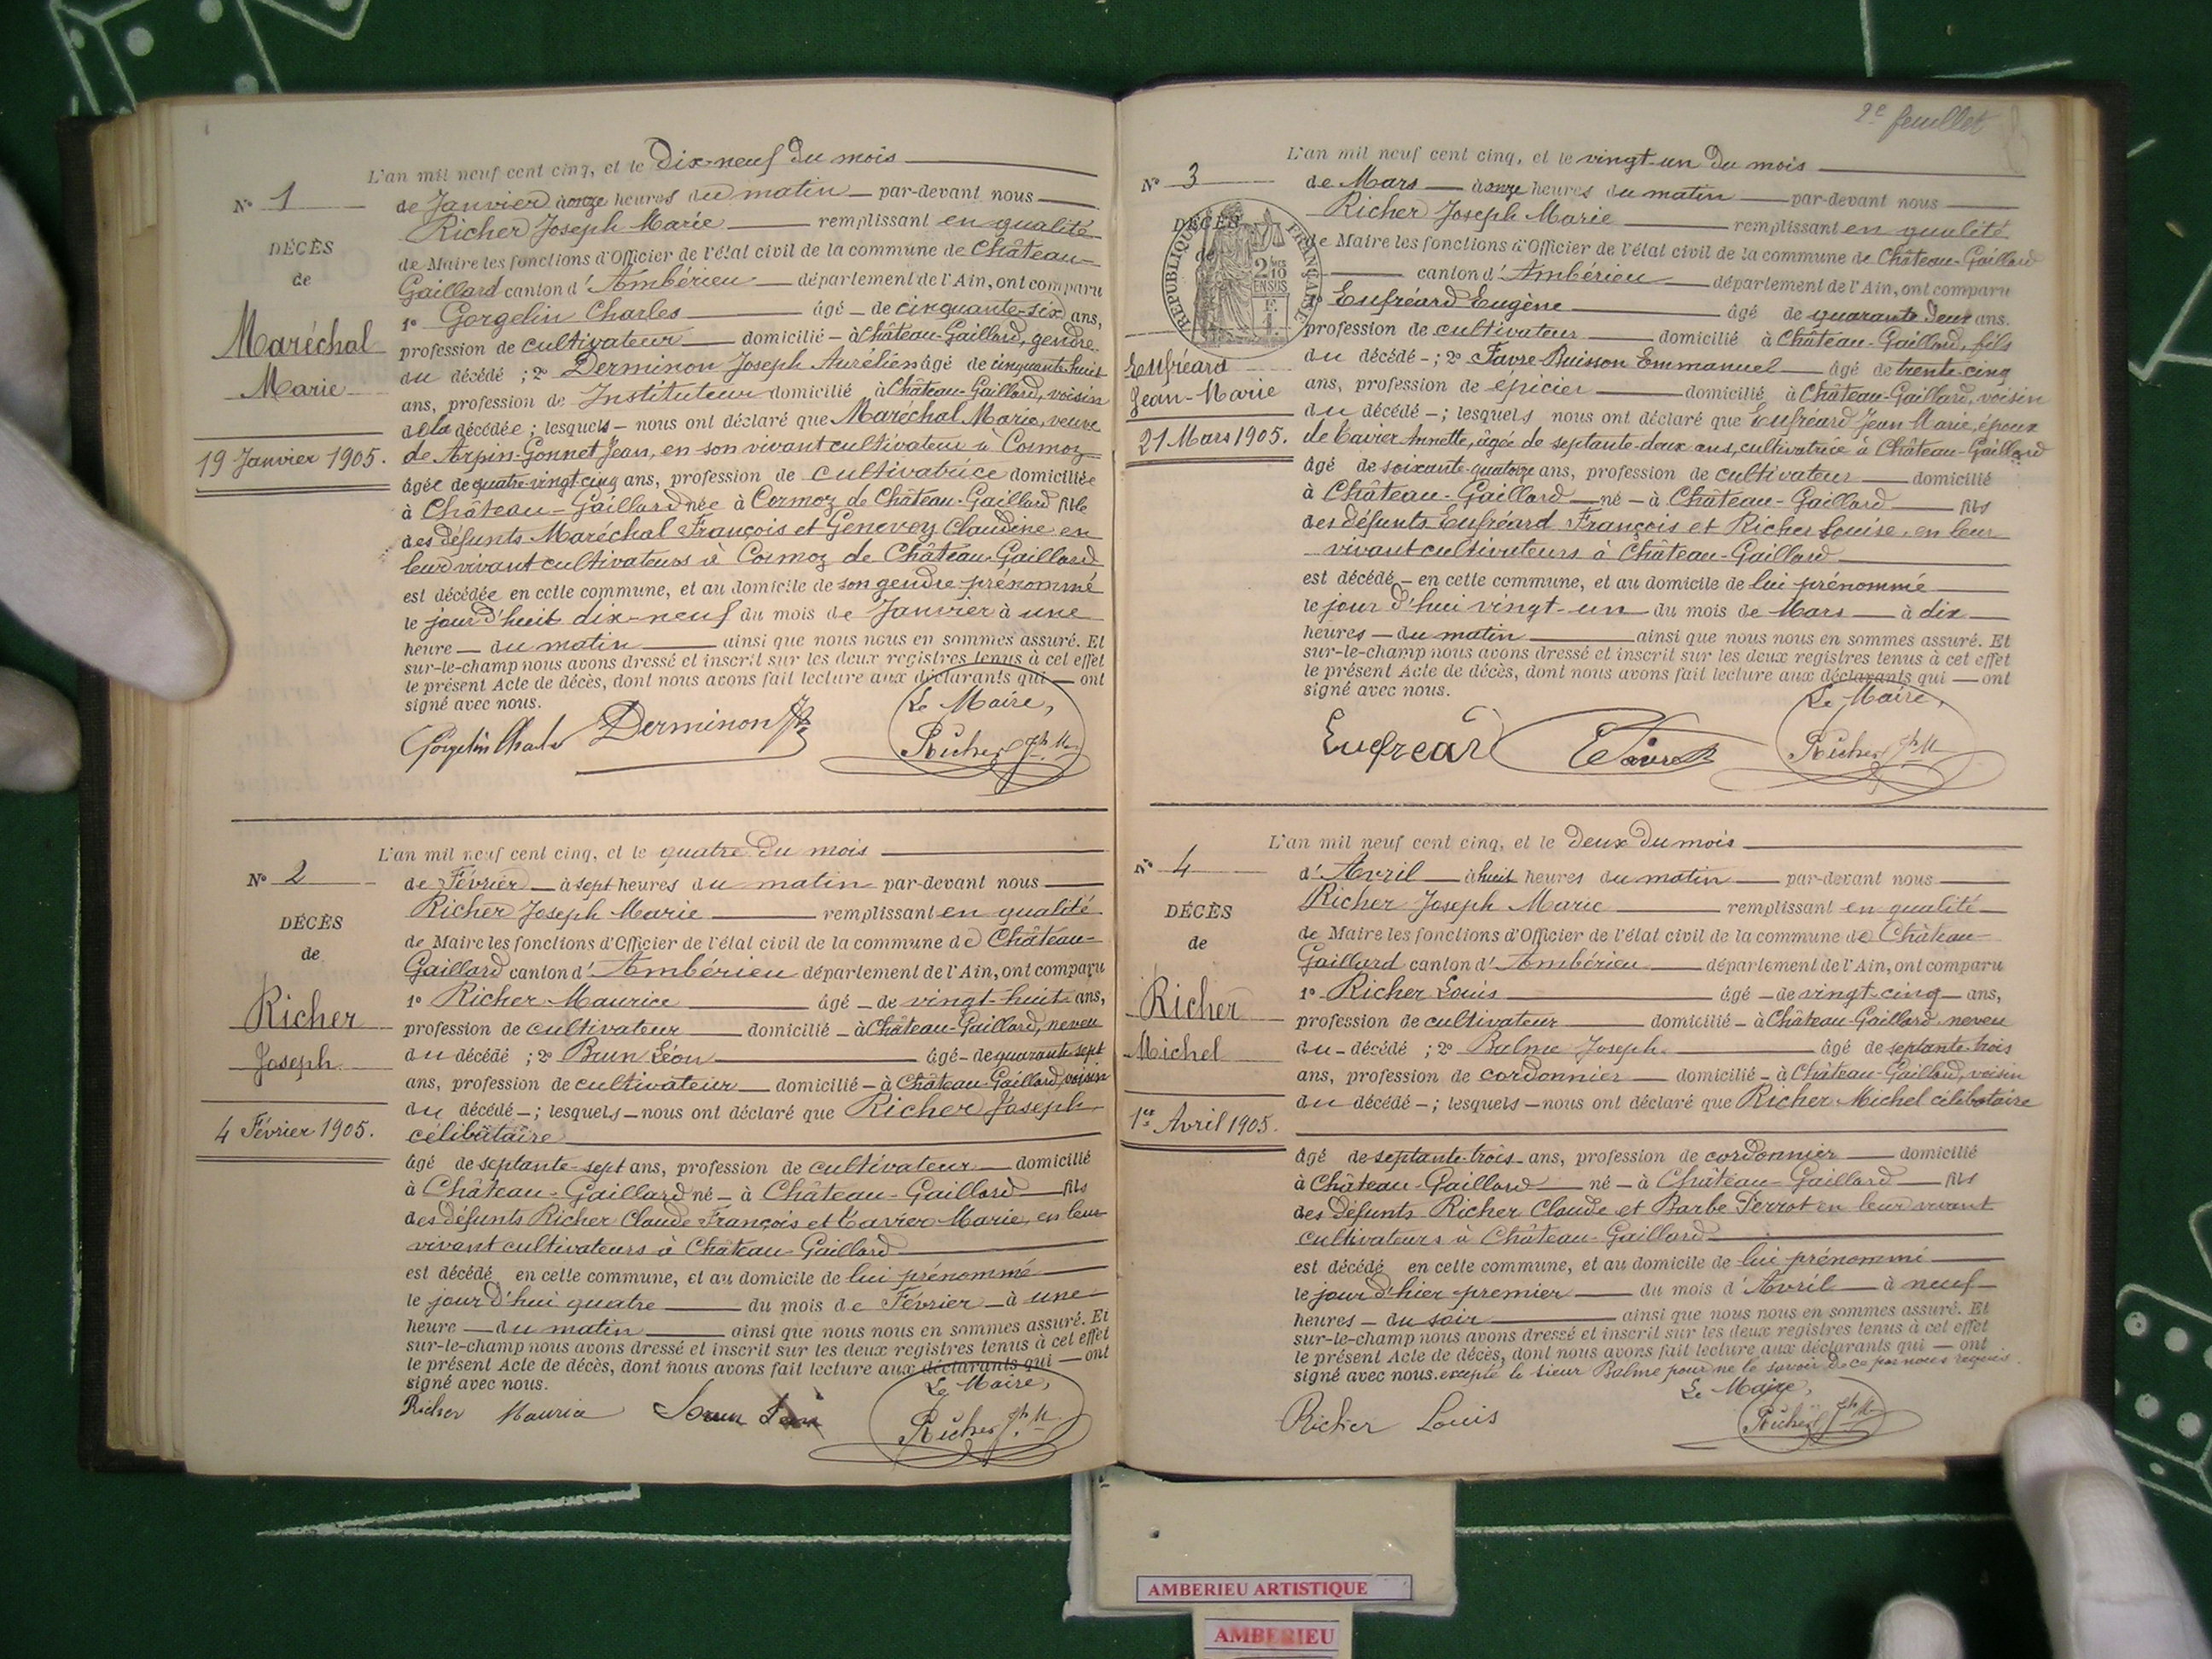 L'an mil neuf cent cinq, et le Dix-neuf du mois
N° 1
de Janvier à onze heures du matin par-devant nous
Richer Joseph Marie remplissant en qualité
DÉCÈS
de Maire les fonctions d'Officier de l'état civil de la commune de Château-
de
Gaillard canton d'Ambérieu département de l'Ain, ont comparu
1° Gorgelin Charles âgé de cinquante-six ans,
Maréchal
profession de cultivateur domicilié à Château-Gaillard, gendre
du décédé ; 2° Derminon Joseph Aurélien âgé de cinquante huit
Marie
ans, profession de Instituteur domicilié à Château-Gaillard, voisin
de la décédée ; lesquels nous ont déclaré que Maréchal Marie, veuve
19 Janvier 1905.
de Arpin-Gonnet Jean, en son vivant cultivateur à Cormoz
âgée de quatre-vingt-cinq ans, profession de cultivatrice domiciliée
à Château-Gaillard née à Cormoz de Château-Gaillard fille
des défunts Maréchal François et Genevoy Claudine en
leur vivant cultivateurs à Cormoz de Château-Gaillard
est décédée en cette commune, et au domicile de son gendre prénommé
le jour d'hui dix-neuf du mois de Janvier à une
heure du matin ainsi que nous nous en sommes assuré. Et
sur-le-champ nous avons dressé et inscrit sur les deux registres tenus à cet effet
le présent Acte de décès, dont nous avons fait lecture aux déclarants qui ont
signé avec nous.
Le Maire,
Gorgelin Charles Derminon Richer Jph M.
L'an mil neuf cent cinq, et le quatre du mois
N° 2
de Février à sept heures du matin par-devant nous
Richer Joseph Marie remplissant en qualité
DÉCÈS
de Maire les fonctions d'Officier de l'état civil de la commune de Château-
de
Gaillard canton d'Ambérieu département de l'Ain, ont comparu
1° Richer Maurice âgé de vingt-huit ans,
Richer
profession de cultivateur domicilié à Château-Gaillard, neveu
du décédé ; 2° Brun Léon âgé de quarante sept
Joseph
ans, profession de cultivateur domicilié à Château-Gaillard, voisin
du décédé ; lesquels nous ont déclaré que Richer Joseph
4 Février 1905.
célibataire
âgé de septante-sept ans, profession de cultivateur domicilié
à Château-Gaillard né à Château-Gaillard fils
des défunts Richer Claude François et Cavier Marie, en leur
vivant cultivateurs à Château-Gaillard
est décédé en cette commune, et au domicile de lui prénommé
le jour d'hui quatre du mois de Février à une
heure du matin ainsi que nous nous en sommes assuré. Et
sur-le-champ nous avons dressé et inscrit sur les deux registres tenus à cet effet
le présent Acte de décès, dont nous avons fait lecture aux déclarants qui ont
signé avec nous.
Le Maire,
Richer Mauric Brun Léon Richer Jph M.
2e feuillet
L'an mil neuf cent cinq, et le vingt-un du mois
N° 3
de Mars à onze heures du matin par-devant nous
Richer Joseph Marie remplissant en qualité
DÉCÈS
de Maire les fonctions d'Officier de l'état civil de la commune de Château-Gaillard
de
canton d'Ambérieu département de l'Ain, ont comparu
RÉPUBLIQUE FRANÇAISE
2/10
EN SUS
1° Eufréard Eugène âgé de quarante deux ans.
profession de cultivateur domicilié à Château-Gaillard, fils
Eufréard
du décédé ; 2° Favre-Buisson Emmanuel âgé de trente-cinq
Jean-Marie
ans, profession de épicier domicilié à Château-Gaillard, voisin
du décédé ; lesquels nous ont déclaré que Eufréard Jean Marie, époux
21 Mars 1905.
de Cavier Annette, âgée de septante-deux ans, cultivatrice à Château-Gaillard
âgé de soixante-quatorze ans, profession de cultivateur domicilié
à Château-Gaillard né à Château-Gaillard fils
des défunts Eufréard François et Richer Louise, en leur
vivant cultivateurs à Château-Gaillard
est décédé en cette commune, et au domicile de lui prénommé
le jour d'hui vingt-un du mois de Mars à dix
heures du matin ainsi que nous nous en sommes assuré. Et
sur-le-champ nous avons dressé et inscrit sur les deux registres tenus à cet effet
le présent Acte de décès, dont nous avons fait lecture aux déclarants qui ont
signé avec nous.
Le Maire,
Eufréard E Favre B Richer Jph M
L'an mil neuf cent cinq, et le Deux du mois
N° 4
d'Avril à huit heures du matin par-devant nous
Richer Joseph Marie remplissant en qualité
DÉCÈS
de Maire les fonctions d'Officier de l'état civil de la commune de Château-
de
Gaillard canton d'Ambérieu département de l'Ain, ont comparu
1° Richer Louis âgé de vingt-cinq ans,
Richer
profession de cultivateur domicilié à Château-Gaillard neveu
Michel
du décédé ; 2° Balme Joseph âgé de septante-trois
ans, profession de cordonnier domicilié à Château-Gaillard, voisin
du décédé ; lesquels nous ont déclaré que Richer Michel célibataire
1er Avril 1905.
âgé de septante-trois ans, profession de cordonnier domicilié
à Château-Gaillard né à Château-Gaillard fils
des défunts Richer Claude et Barbe Perrot en leur vivant
cultivateurs à Château-Gaillard
est décédé en cette commune, et au domicile de lui prénommé
le jour d'hier premier du mois d'Avril à neuf
heures du soir ainsi que nous nous en sommes assuré. Et
sur-le-champ nous avons dressé et inscrit sur les deux registres tenus à cet effet
le présent Acte de décès, dont nous avons fait lecture aux déclarants qui ont
signé avec nous. excepté le sieur Balme pour ne le savoir de ce par nous requis.
Le Maire,
Richer Louis Richer Jph M
AMBERIEU ARTISTIQUE
AMBERIEU